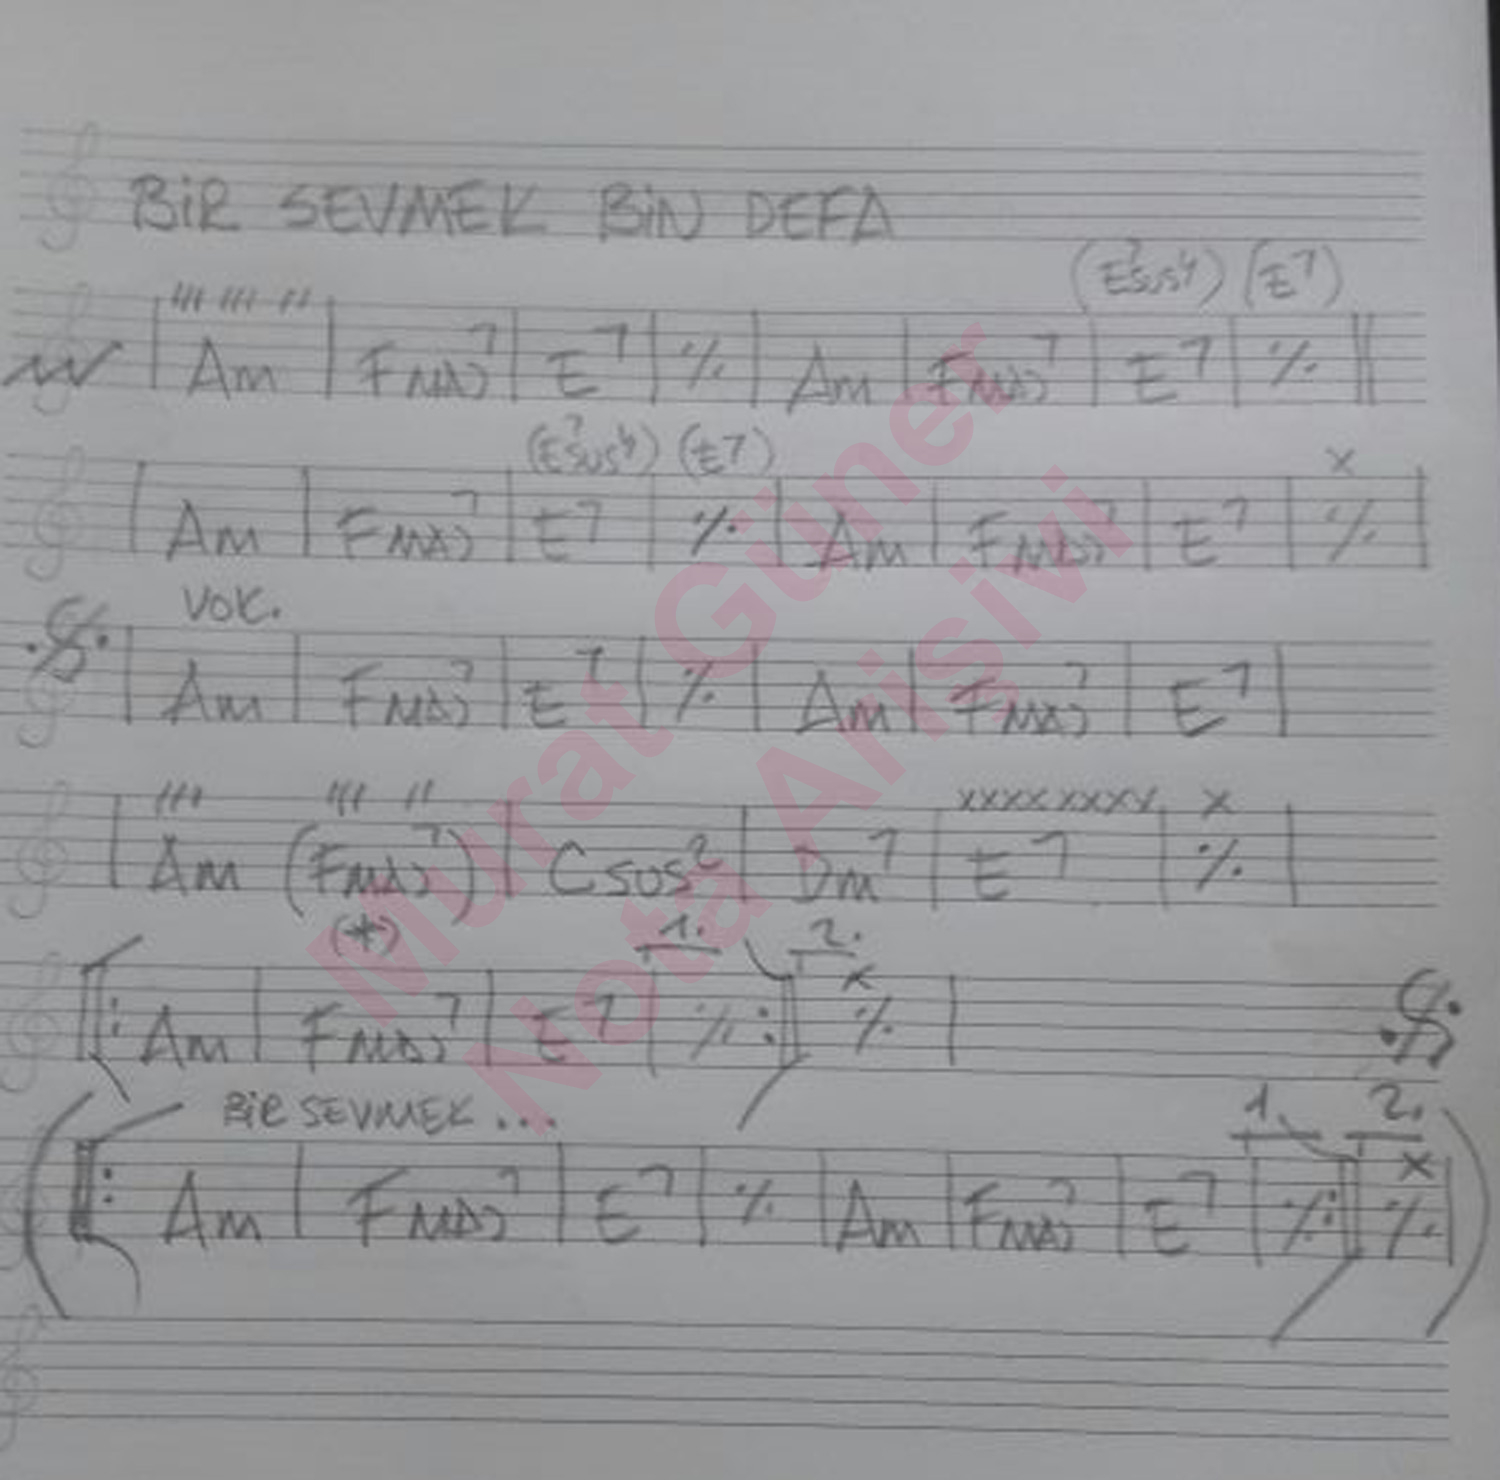 BİR SEVMEK BİN DEFA
(E7sus4) (E7)
Am | FMAJ7 | E7 | % | Am | FMAJ7 | E7 | % ||
(E7sus4) (E7) x
| Am | FMAJ7 | E7 | % | Am | FMAJ7 | E7 | % |
VOK.
| Am | FMAJ7 | E7 | % | Am | FMAJ7 | E7 |
/// /// // xxxxxxxx x
| Am (FMAJ7) | Csus2 | Dm7 | E7 | % |
(*) 1. 2. x
|: Am | FMAJ7 | E7 | % :| % |
BİR SEVMEK... 1. 2. x
(|: Am | FMAJ7 | E7 | % | Am | FMAJ7 | E7 | % :| % |)
Murat Güner
Nota Arisivi